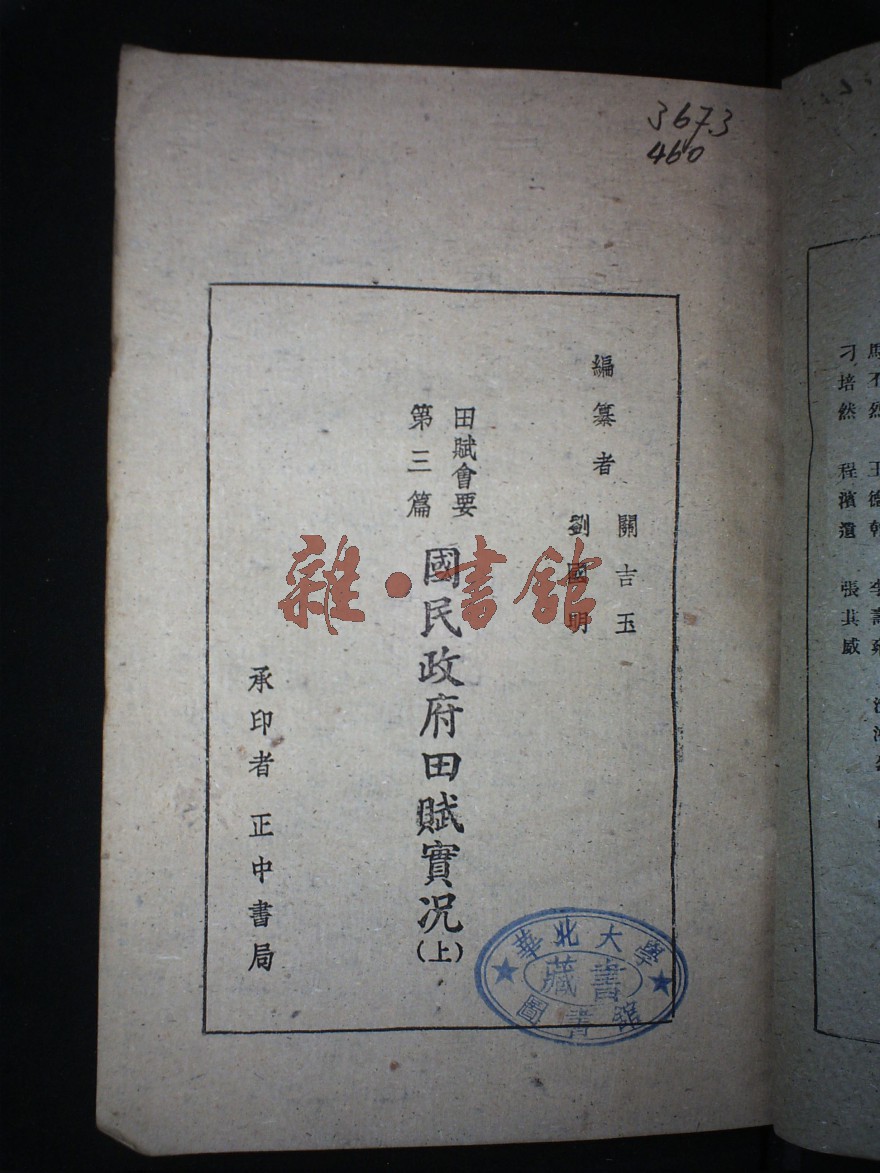 3673
460
編纂者
關吉玉
劉國明
田賦會要
第三篇
國民政府田賦實况(上)
承印者 正中書局
雜·書館
華北大學
藏書
圖書館
王德
刁培然 程濱遺 張其威